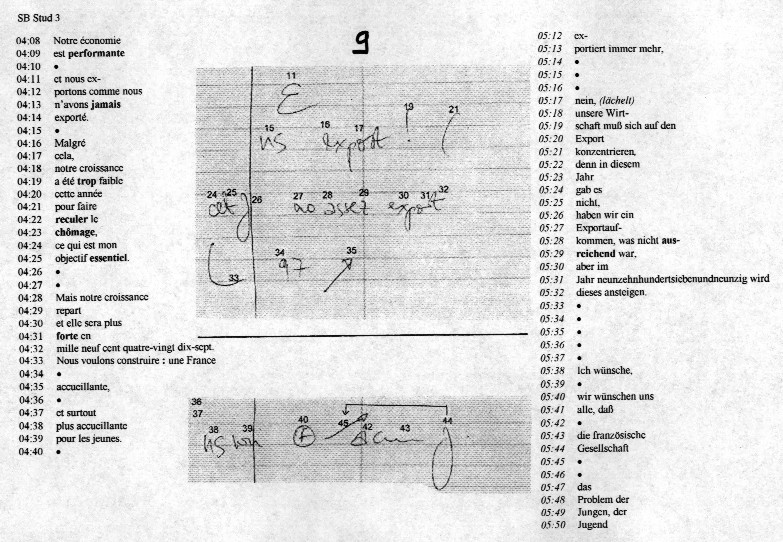 SB Stud 3
9
04:08 Notre économie
04:09 est performante
04:10 •
04:11 et nous ex-
04:12 portons comme nous
04:13 n'avons jamais
04:14 exporté.
04:15 •
04:16 Malgré
04:17 cela,
04:18 notre croissance
04:19 a été trop faible
04:20 cette année
04:21 pour faire
04:22 reculer le
04:23 chômage,
04:24 ce qui est mon
04:25 objectif essentiel.
04:26 •
04:27 •
04:28 Mais notre croissance
04:29 repart
04:30 et elle sera plus
04:31 forte en
04:32 mille neuf cent quatre-vingt dix-sept.
04:33 Nous voulons construire : une France
04:34 •
04:35 accueillante,
04:36 •
04:37 et surtout
04:38 plus accueillante
04:39 pour les jeunes.
04:40 •
11
15 16 17 19 21
ns export !
24 25 26 27 28 29 30 31 32
no assez export
33 34 35
97
36
37
38 39 40 45 42 43 44
ns
05:12 ex-
05:13 portiert immer mehr,
05:14 •
05:15 •
05:16 •
05:17 nein, (lächelt)
05:18 unsere Wirt-
05:19 schaft muß sich auf den
05:20 Export
05:21 konzentrieren,
05:22 denn in diesem
05:23 Jahr
05:24 gab es
05:25 nicht,
05:26 haben wir ein
05:27 Exportauf-
05:28 kommen, was nicht aus-
05:29 reichend war,
05:30 aber im
05:31 Jahr neunzehnhundertsiebenundneunzig wird
05:32 dieses ansteigen.
05:33 •
05:34 •
05:35 •
05:36 •
05:37 •
05:38 Ich wünsche,
05:39 •
05:40 wir wünschen uns
05:41 alle, daß
05:42 •
05:43 die französische
05:44 Gesellschaft
05:45 •
05:46 •
05:47 das
05:48 Problem der
05:49 Jungen, der
05:50 Jugend